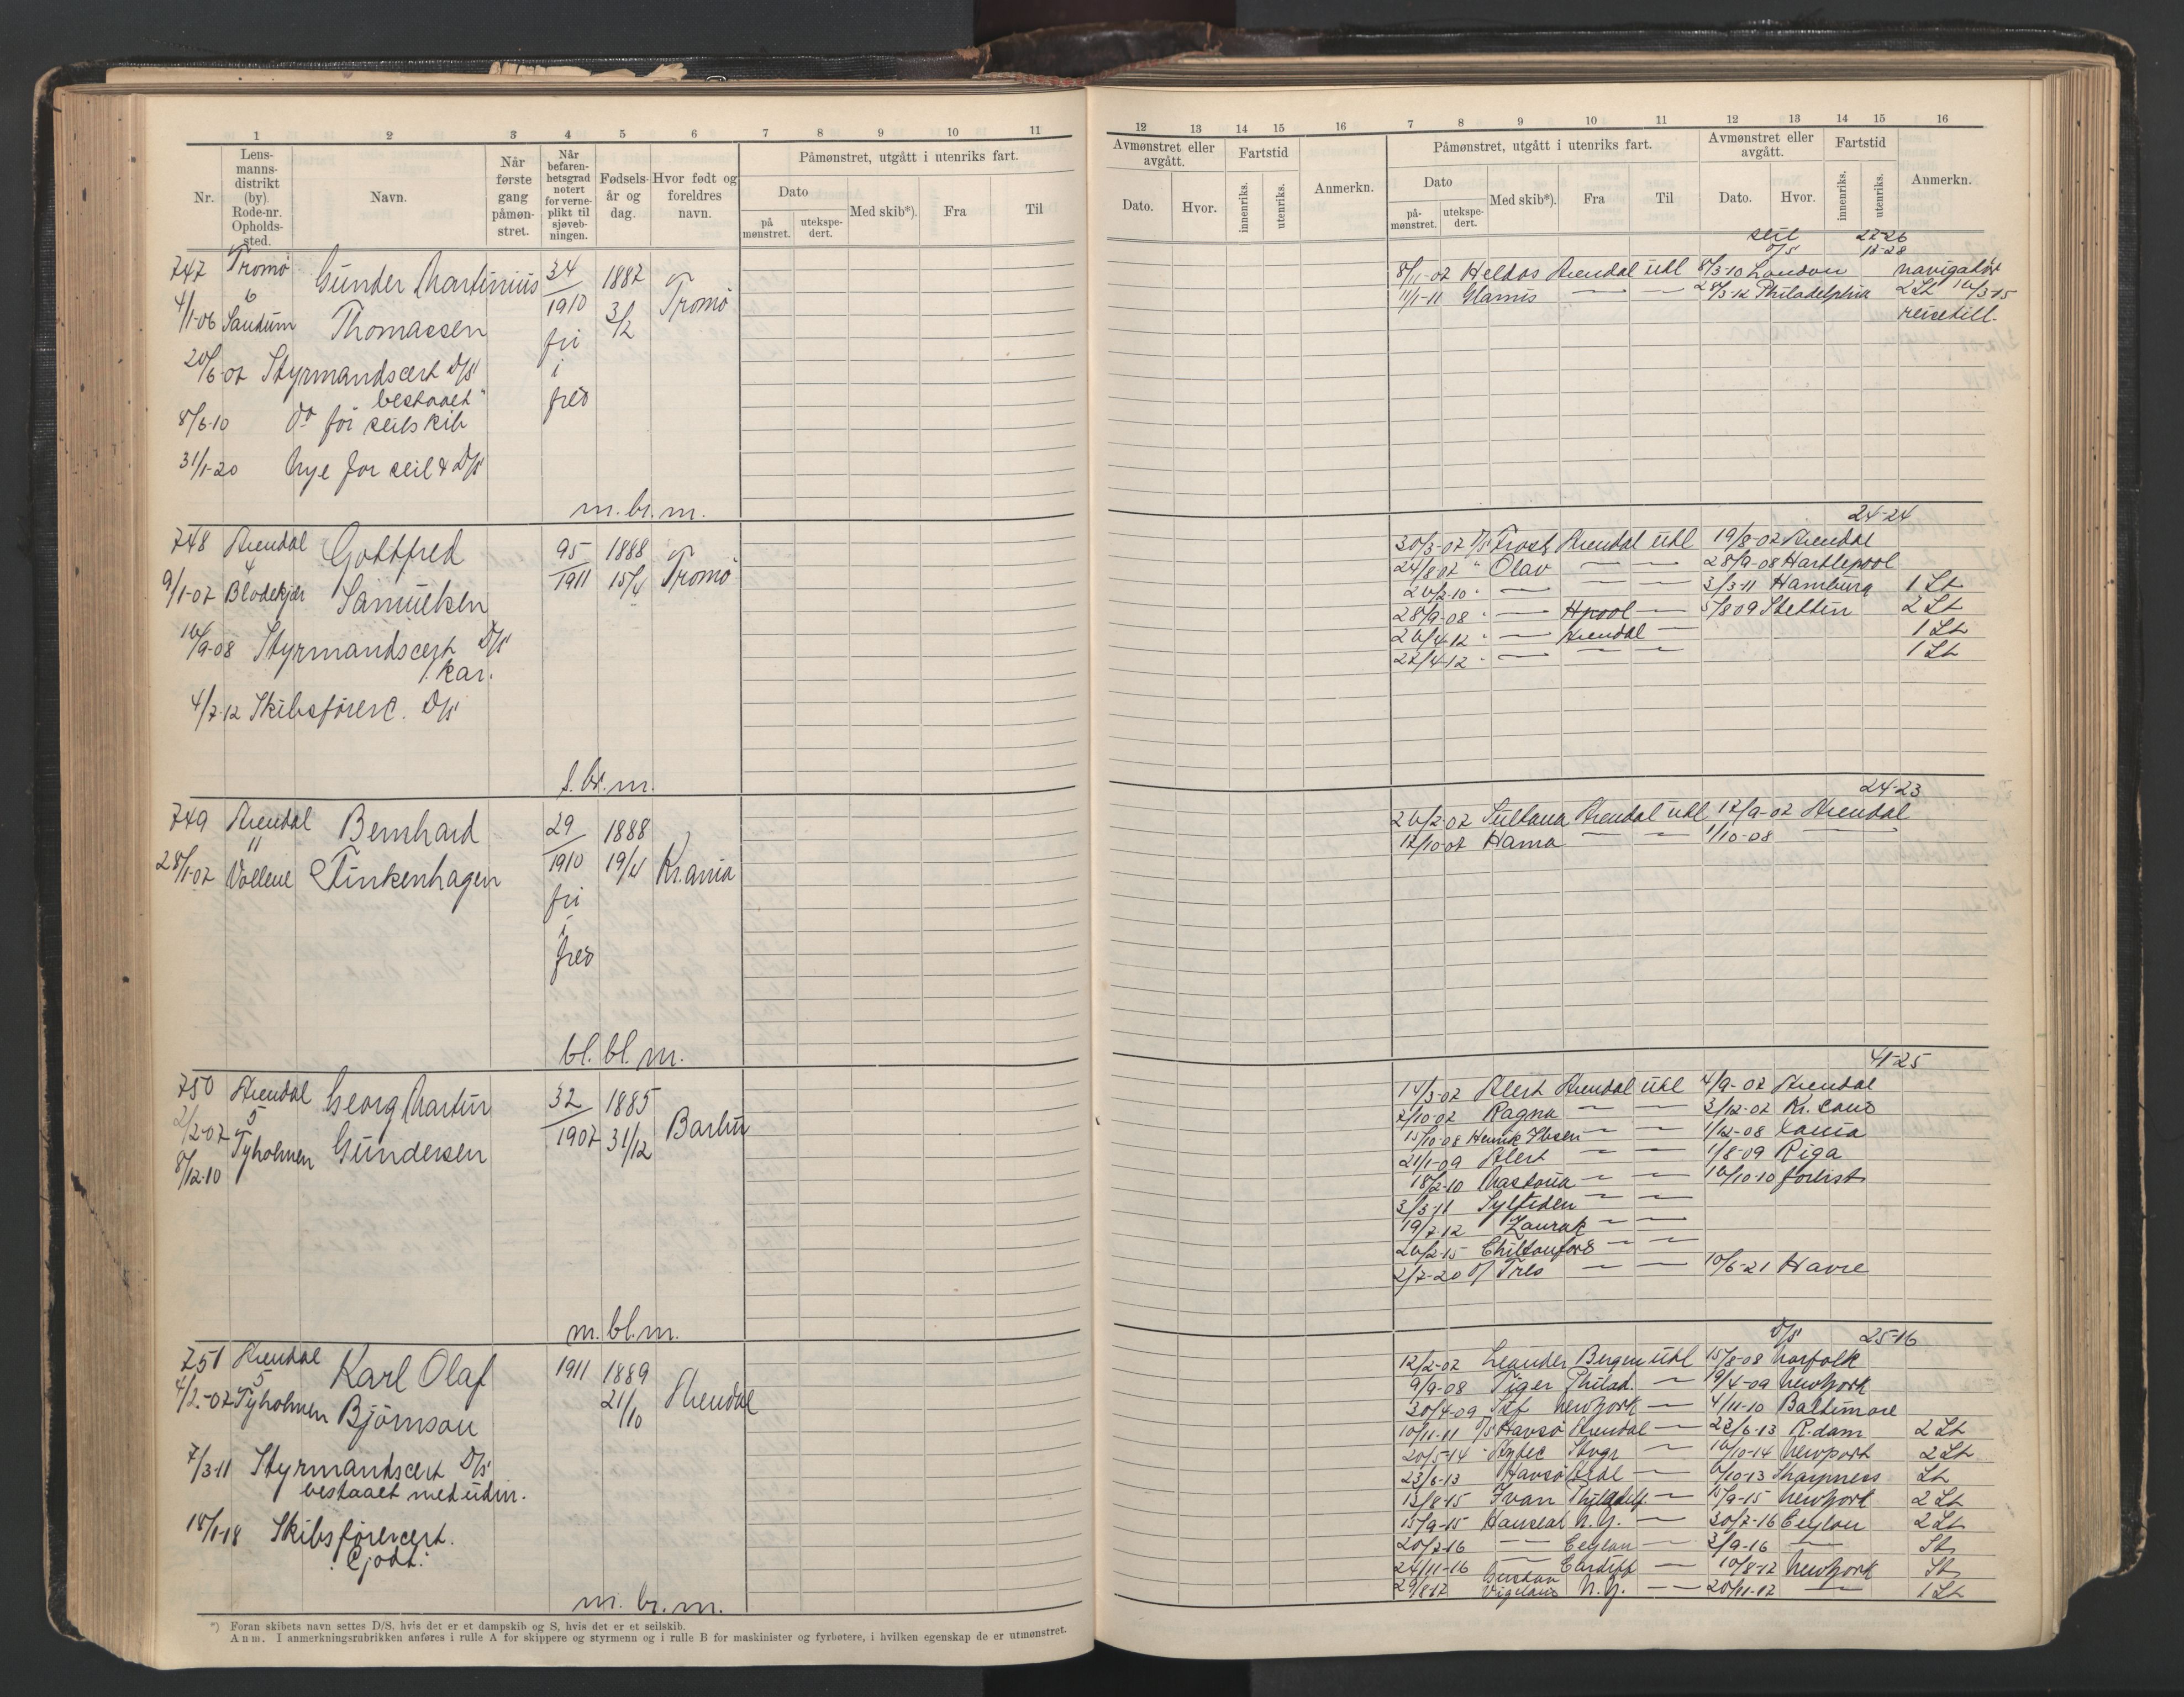 1 2 3 4 5 6 7 8 9 10 11
Nr.
Lens-
manns-
distrikt
(by).
Rode-nr.
Opholds-
sted.
Navn.
Når
første
gang
påmøn-
stret.
Når
befaren-
hetsgrad
notert
for verne-
plikt til
sjøveb-
ningen.
Fødsels-
år og
dag.
Hvor født og
foreldres
navn.
Påmønstret, utgått i utenriks fart.
Dato
på
mønstret.
utekspe-
dert.
Med skib*).
Fra
Til
747 Tromö Gunder Martinius 34 1887
6 1910 3/2 Tromö
4/1-06 Sandum Thomassen fri
20/6-07 Styrmandscert D/S i
bestaaet fred
8/6-10 Do for seilskib
31/1-20 Nye for seil & D/S
m. br. m.
748 Arendal Gottfred 95 1888
4 1911 15/4 Tromö
9/1-07 Blödekjær Samuelsen
16/9-08 Styrmandscert D/S
1 kar.
4/7-12 Skibsförerc. D/S
l. br. m.
749 Arendal Bernhard 29 1888
11 1910 19/4 Kr.ania
28/1-07 Vollene Finkenhagen fri
i
fred
bl. bl. m.
750 Arendal Georg Martin 32 1885
5 1907 31/12 Barbu
2/2-07 Tyholmen Gundersen
8/12-10
m. bl. m.
751 Arendal Karl Olaf 1911 1889
5 21/10 Arendal
4/2-07 Tyholmen Björnson
7/3-11 Styrmandscert D/S
bestaaet med udm.
18/1-18 Skibsförercert.
Godt.
m. br. m.
*) Foran skibets navn settes D/S, hvis det er et dampskib og S, hvis det er et seilskib.
Anm. I anmerkningsrubrikken anføres i rulle A for skippere og styrmenn og i rulle B for maskinister og fyrbøtere, i hvilken egenskap de er utmønstret.
12 13 14 15 16 7 8 9 10 11 12 13 14 15 16
Avmønstret eller
avgått.
Dato.
Hvor.
Fartstid
innenriks.
utenriks.
Anmerkn.
Påmønstret, utgått i utenriks fart.
Dato
på-
mønstret.
utekspe-
dert.
Med skib*).
Fra
Til
Avmønstret eller
avgått.
Dato.
Hvor.
Fartstid
innenriks.
utenriks.
Anmerkn.
seil 27-26
D/S 18-28
8/11-07 Heldos Arendal udl 8/3-10 London navigatör
11/1-11 Glamis — — 28/3-12 Philadelphia 2 St 16/3-15
reisetill.
24-24
30/3-07 D/S Frost Arendal udl 19/8-07 Arendal
24/8 07 " Olav — — 28/9-08 Hartlepool
26/2-10 " — — — 3/3-11 Hamburg 1 St
28/9-08 " — Hpool — 5/8 09 Stettin 2 St
26/4-12 " — Arendal — 1 St
22/4-12 " — — — 1 St
24-23
26/2-07 Sultana Arendal udl 17/9-07 Arendal
17/10-07 Hama — — 1/10-08 —
41-25
14/3-07 Alert Arendal udl 4/9-07 Arendal
7/10-07 Ragna — — 3/12-07 Kr.sand
15/10-08 Henrik Ibsen — — 1/12-08
21/1-09 Alert — — 1/8-09 Riga
18/2-10 — — 16/10-10 forlist
3/3-11 Sylfiden — —
19/7-12 Zaurak — —
26/2-15 Chiltonford — —
2/7-20 D/ Tres — — 10/6-21 Havre
D/S 25-16
12/2-07 Leander Bergen udl 15/8-08 Norfolk
9/9-08 Tiger Philad. — 19/4-09 Newyork
30/4-09 Newyork — 4/11-10 Baltimore
10/11-11 D/S Havsö Arendal — 23/6-13 R.dam 2 St
20/5-14 Stvgr — 16/10-14 Newport 2 St
23/6-13 Havsö — 6/10-13 Sharpness St
13/8-15 Ivan — 15/9-15 Newyork 2 St
15/9-15 Hanseat N.Y. — 30/7-16 Ceylon 2 St
20/7-16 — Ceylon — 2/9-16 — St
24/11-16 — Cardiff — 10/8-17 Newyork St
29/8-17 Gustav Vigeland N.Y. — 20/11-17 — 1 St